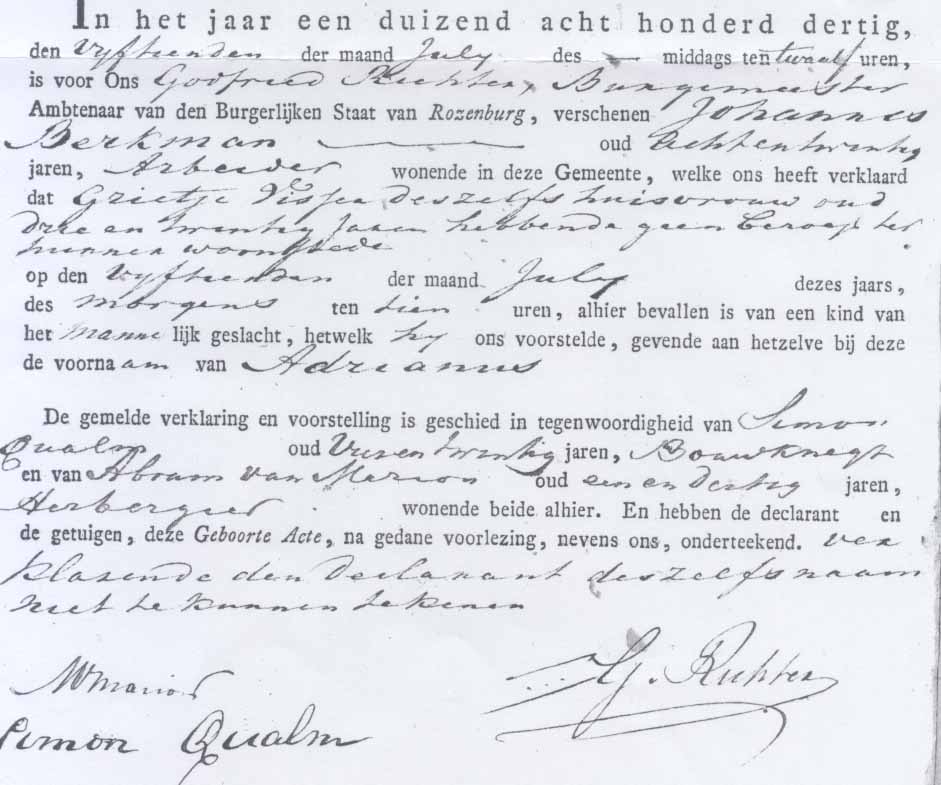 In het jaar een duizend acht honderd dertig,
den Vyftienden der maand July des — middags ten twaalf uren,
is voor Ons Godfried Richter, Burgemeester
Ambtenaar van den Burgerlijken Staat van Rozenburg, verschenen Johannes
Berkman — oud Achtentwintig
jaren, Arbeider wonende in deze Gemeente, welke ons heeft verklaard
dat Grietje Visser deszelfs huisvrouw oud
drie en twintig Jaren hebbende geen beroep ter
hunner woonstede
op den Vyftienden der maand July dezes jaars,
des morgens ten tien uren, alhier bevallen is van een kind van
het manne lijk geslacht, hetwelk hy ons voorstelde, gevende aan hetzelve bij deze
de voornaam van Adrianus
De gemelde verklaring en voorstelling is geschied in tegenwoordigheid van Simon
Qualm oud Vierentwintig jaren, Bouwknegt
en van Abram van Marion oud een en dertig jaren,
Herbergier wonende beide alhier. En hebben de declarant en
de getuigen, deze Geboorte Acte, na gedane voorlezing, nevens ons, onderteekend. ver
klarende den declarant deszelfs naam
niet te kunnen tekenen
G. Richter
Simon Qualm